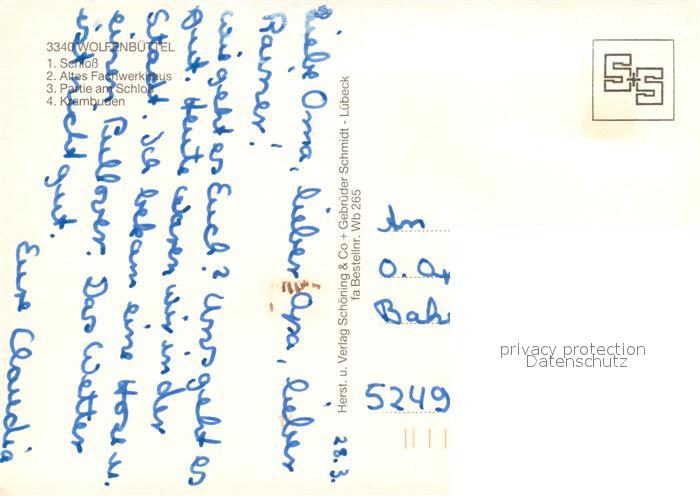 3340 WOLFENBÜTTEL
1. Schloß
2. Altes Fachwerkhaus
3. Partie am Schloß
4. Krambuden
28.3.
Liebe Oma, lieber Opa, lieber
Rainer!
Wie geht es Euch? Uns geht es
gut. Heute waren wir in der
Stadt. Ich bekam eine Hose u.
einen Pullover. Das Wetter
ist nicht gut.
Eure Claudia
Herst. u. Verlag Schöning & Co + Gebrüder Schmidt - Lübeck
fa Bestellnr. Wb 265
S+S
An
O.
Bah
5249
privacy protection
Datenschutz